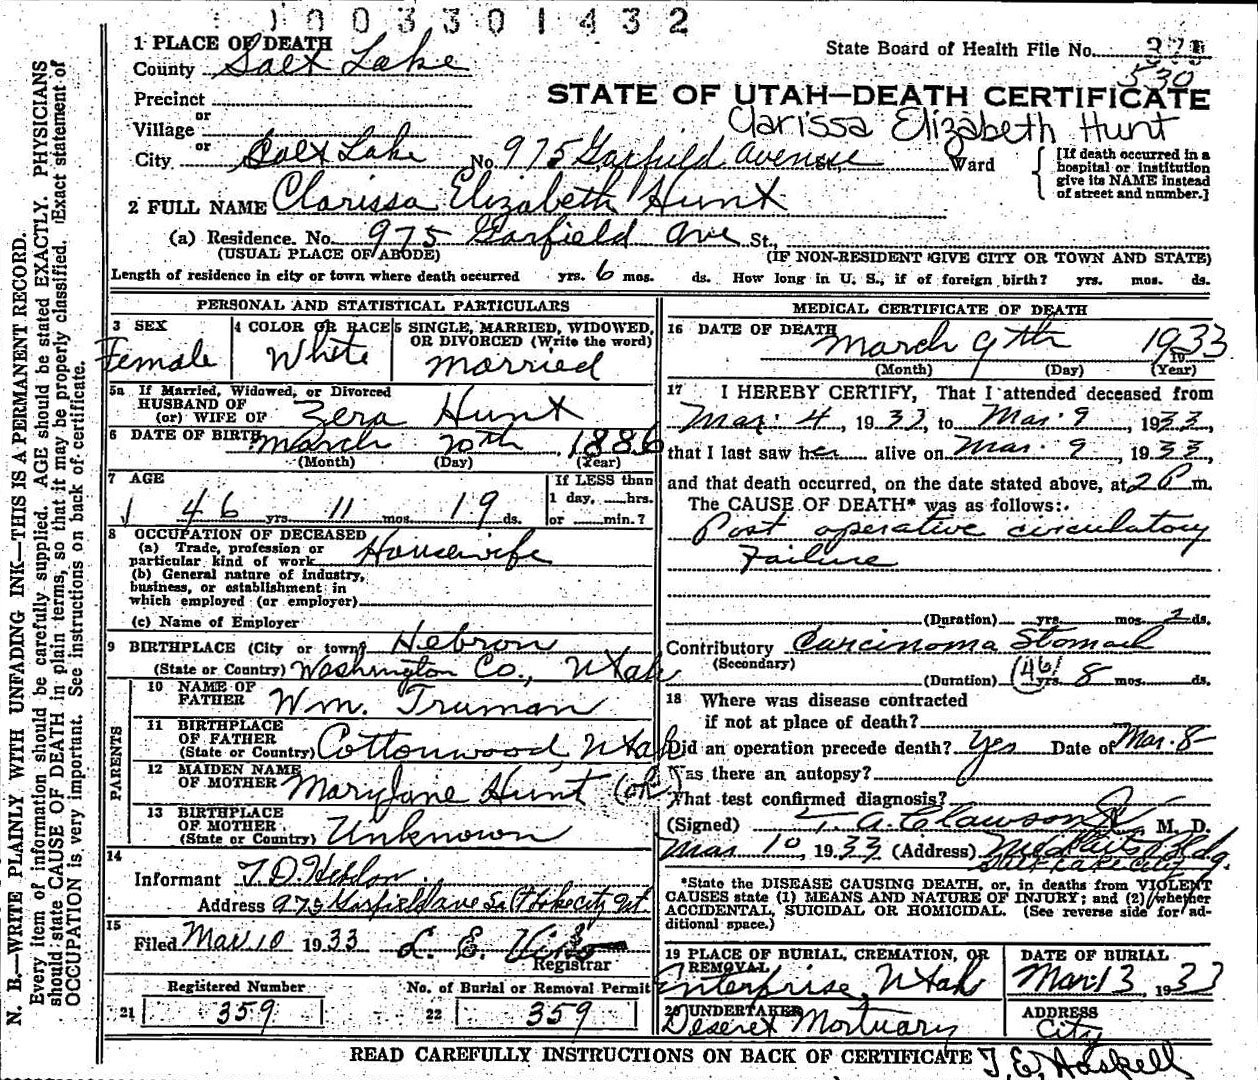 1003301432
1 PLACE OF DEATH
State Board of Health File No.
County Salt Lake
530
Precinct
STATE OF UTAH—DEATH CERTIFICATE
or
Clarissa Elizabeth Hunt
Village
or
City Salt Lake No. 975 Garfield Avenue St., Ward
[If death occurred in a
hospital or institution
give its NAME instead
of street and number.]
2 FULL NAME Clarissa Elizabeth Hunt
(a) Residence. No. 975 Garfield Ave St.,
(USUAL PLACE OF ABODE) (IF NON-RESIDENT GIVE CITY OR TOWN AND STATE)
Length of residence in city or town where death occurred yrs. 6 mos. ds. How long in U. S., if of foreign birth? yrs. mos. ds.
PERSONAL AND STATISTICAL PARTICULARS
3 SEX
Female
4 COLOR OR RACE
White
5 SINGLE, MARRIED, WIDOWED,
OR DIVORCED (Write the word)
Married
5a If Married, Widowed, or Divorced
HUSBAND OF
(or) WIFE OF Zera Hunt
6 DATE OF BIRTH March 20th, 1886
(Month) (Day) (Year)
7 AGE
46 yrs. 11 mos. 19 ds.
If LESS than
1 day, hrs.
or min.?
8 OCCUPATION OF DECEASED
(a) Trade, profession or
particular kind of work Housewife
(b) General nature of industry,
business, or establishment in
which employed (or employer)
(c) Name of Employer
9 BIRTHPLACE (City or town) Hebron
(State or Country) Washington Co., Utah
PARENTS
10 NAME OF
FATHER Wm. Truman
11 BIRTHPLACE
OF FATHER
(State or Country) Cottonwood, Utah
12 MAIDEN NAME
OF MOTHER Mary Jane Hunt (ok)
13 BIRTHPLACE
OF MOTHER
(State or Country) Unknown
14
Informant T. D.
Address 975 Garfield ave Salt Lake City Ut
15
Filed Mar 10 1933 L. E.
Registrar
Registered Number No. of Burial or Removal Permit
21 359 22 359
MEDICAL CERTIFICATE OF DEATH
16 DATE OF DEATH
March 9th 1933
(Month) (Day) (Year)
17 I HEREBY CERTIFY, That I attended deceased from
Mar. 4, 1933, to Mar. 9, 1933,
that I last saw her alive on Mar. 9, 1933,
and that death occurred, on the date stated above, at 2 P m.
The CAUSE OF DEATH* was as follows:
Post operative circulatory
Failure
(Duration) yrs. mos. 2 ds.
Contributory Carcinoma Stomach
(Secondary)
(46)
(Duration) yrs. 8 mos. ds.
18 Where was disease contracted
if not at place of death?
Did an operation precede death? Yes Date of Mar. 8
Was there an autopsy?
What test confirmed diagnosis?
(Signed) T. A. Clawson Jr M. D.
Mar 10, 1933 (Address) Med Arts Bldg.
Salt Lake City
*State the DISEASE CAUSING DEATH, or, in deaths from VIOLENT
CAUSES state (1) MEANS AND NATURE OF INJURY; and (2) whether
ACCIDENTAL, SUICIDAL OR HOMICIDAL. (See reverse side for ad-
ditional space.)
19 PLACE OF BURIAL, CREMATION, OR
REMOVAL
Enterprise, Utah
DATE OF BURIAL
Mar 13, 1933
20 UNDERTAKER
Deseret Mortuary
ADDRESS
City
READ CAREFULLY INSTRUCTIONS ON BACK OF CERTIFICATE T. E. Haskell
N. B.—WRITE PLAINLY WITH UNFADING INK—THIS IS A PERMANENT RECORD.
Every item of information should be carefully supplied. AGE should be stated EXACTLY. PHYSICIANS
should state CAUSE OF DEATH in plain terms, so that it may be properly classified. (Exact statement of
OCCUPATION is very important. See instructions on back of certificate.